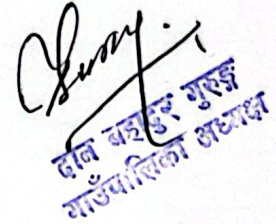 दान बहादुर गुरुङ्ग
गाउँपालिका अध्यक्ष